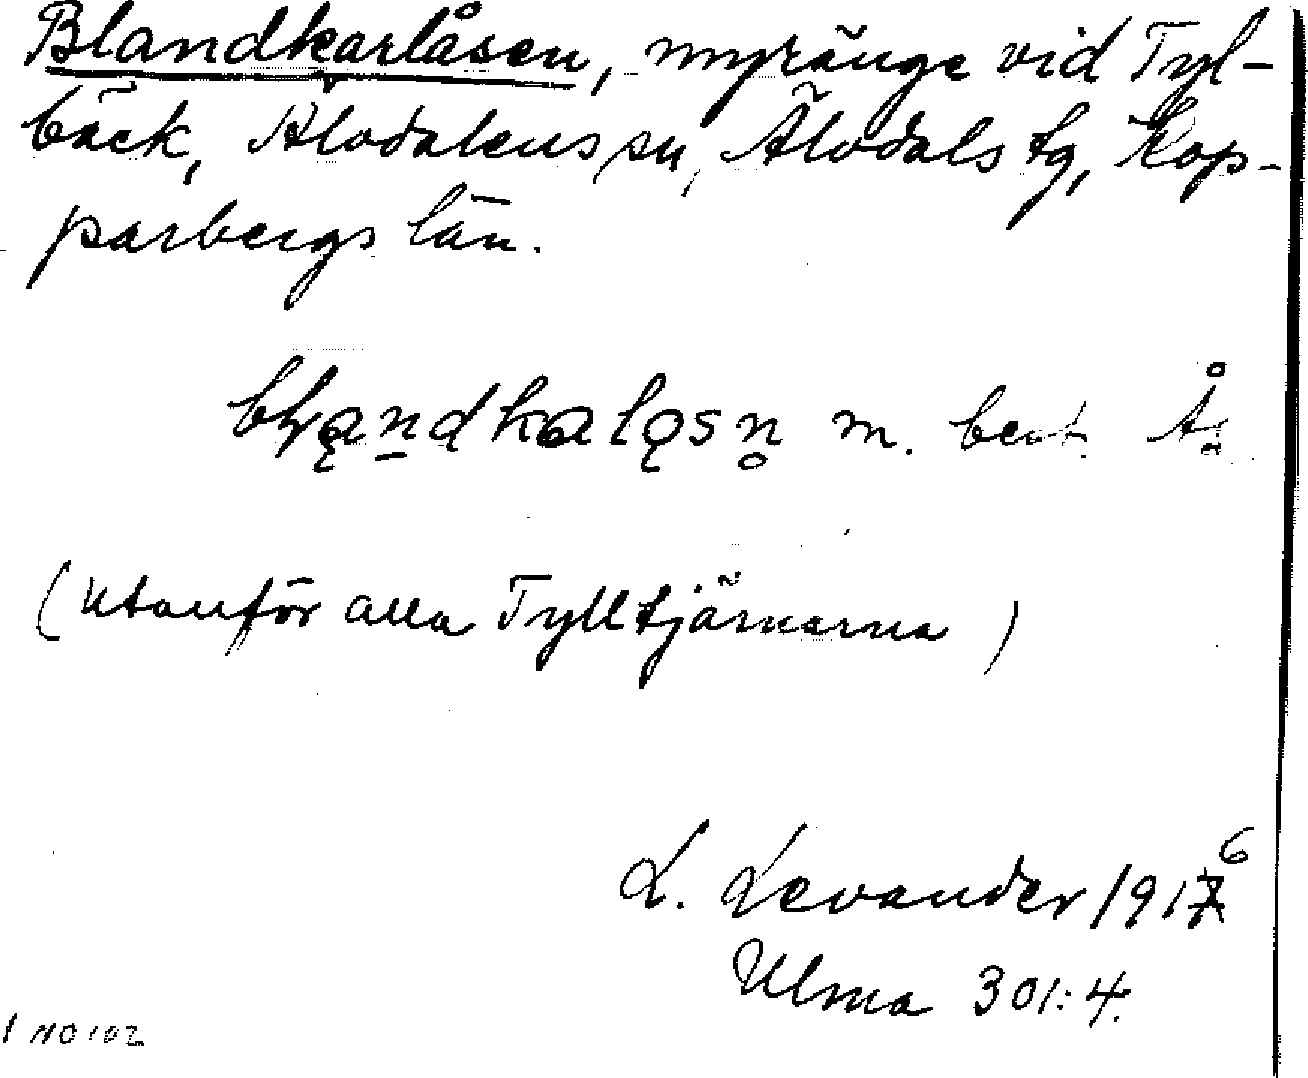 Blandkarlåsen, myränge vid Tyl-
bäck, Älvdalens sn, Älvdals tg, Kop-
parbergs län.
m. best.
(utanför alla Tylltjärnarna)
L. Levander 1916
Ulma 301:4.